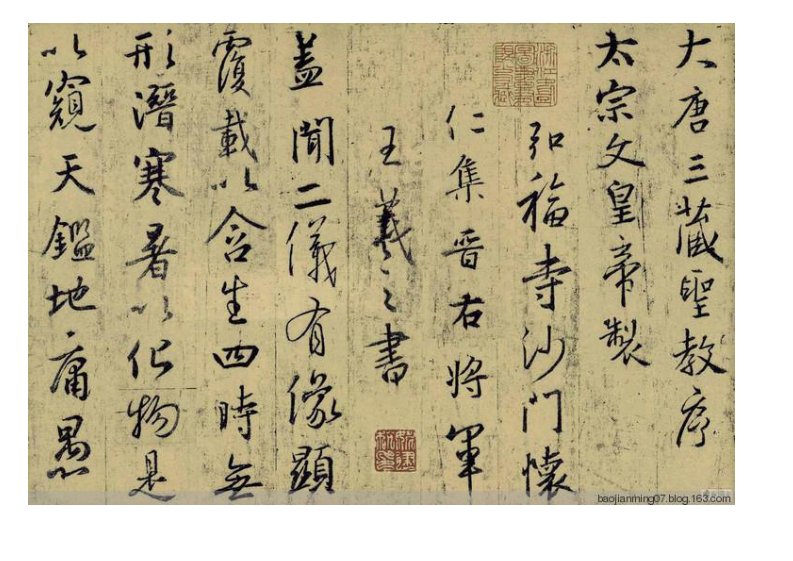 大唐三藏聖教序
太宗文皇帝製
弘福寺沙門懷
仁集晉右將軍
王羲之書
蓋聞二儀有像顯
覆載以含生四時無
形潛寒暑以化物是
以窺天鑑地庸愚
baojianming07.blog.163.com